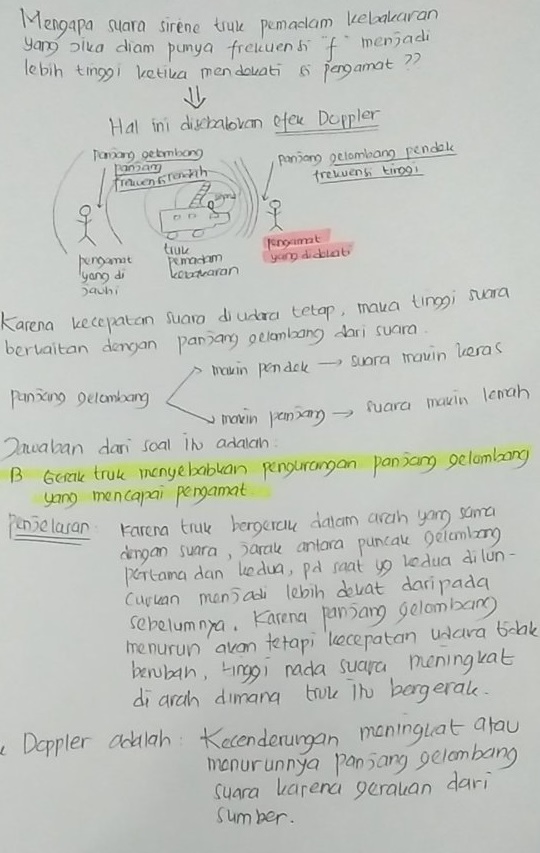 Mengapa suara sirene truk pemadam kebakaran
yang jika diam punya frekuensi "f" menjadi
lebih tinggi ketika mendekati si pengamat ??
Hal ini disebabkan efek Doppler
panjang gelombang
panjang
frekuensi rendah
panjang gelombang pendek
frekuensi tinggi
pengamat
yang di
jauhi
truk
pemadam
kebakaran
pengamat
yang didekati
Karena kecepatan suara di udara tetap, maka tinggi suara
berkaitan dengan panjang gelombang dari suara.
panjang gelombang
makin pendek → suara makin keras
makin panjang → suara makin lemah
Jawaban dari soal itu adalah:
B Gerak truk menyebabkan pengurangan panjang gelombang
yang mencapai pengamat.
Penjelasan: Karena truk bergerak dalam arah yang sama
dengan suara, jarak antara puncak gelombang
pertama dan kedua, pd saat yg kedua dilun-
curkan menjadi lebih dekat daripada
sebelumnya. Karena panjang gelombang
menurun akan tetapi kecepatan udara tidak
berubah, tinggi nada suara meningkat
di arah dimana truk itu bergerak.
Doppler adalah: Kecenderungan meningkat atau
menurunnya panjang gelombang
suara karena gerakan dari
sumber.